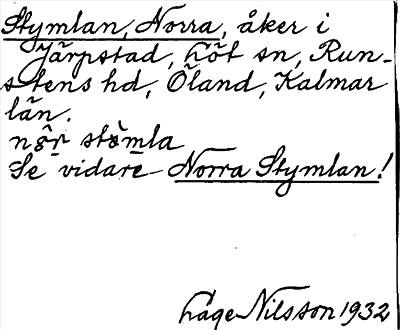 Stymlan, Norra, åker i
Järpstad, Löt sn, Run-
stens hd, Öland, Kalmar
län.
nö̀r stö̀mla
Se vidare Norra Stymlan!
Låge Nilsson 1932